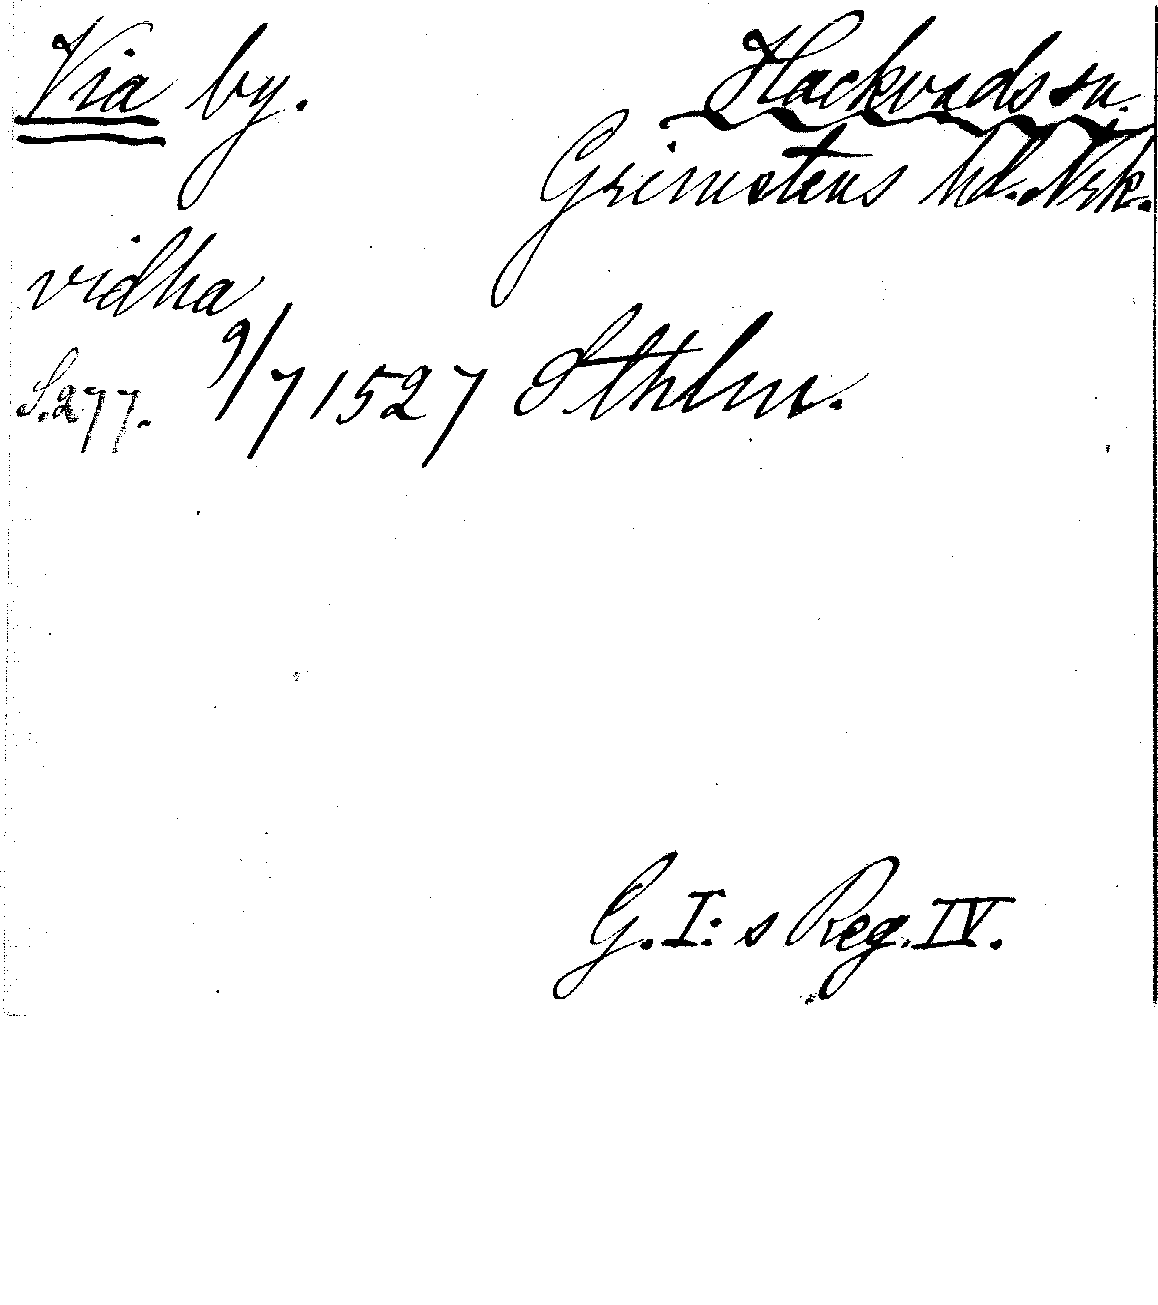 Via by. Hackvads sn.
Grimstens hd. Nrk.
vidha
S. 277. 9/7 1527 Sthlm.
G. I:s Reg. IV.